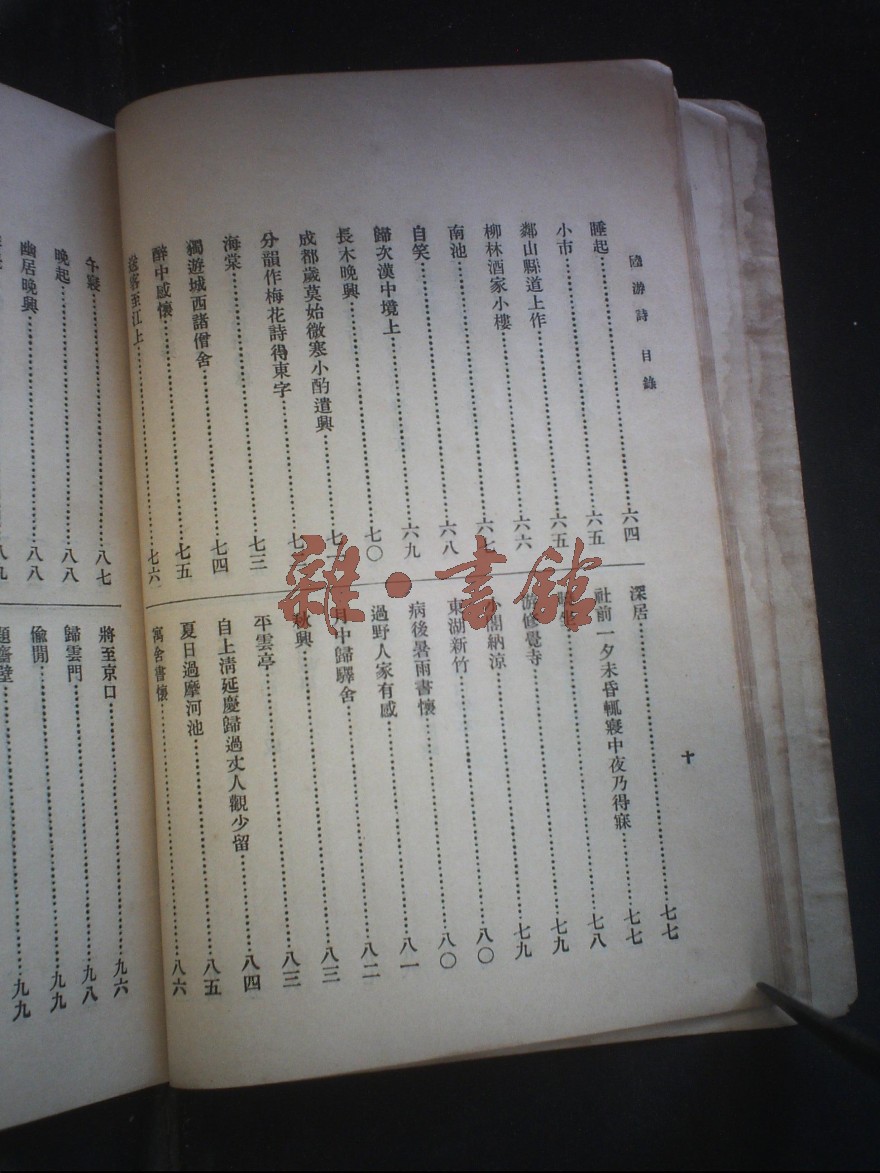 游詩 目錄
睡起……六四
小市……六五
鄰山縣道上作……六五
柳林酒家小樓……六六
南池……六七
自笑……六八
歸次漢中境上……六九
長木晚興……七〇
成都歲莫始微寒小酌遣興……七
分韻作梅花詩得東字……七
海棠……七三
獨遊城西諸僧舍……七四
醉中感懷……七五
送客至江上……七六
深居……七七
社前一夕未昏輒寢中夜乃得寐……七七
……七八
游修覺寺……七九
小閣納涼……七九
東湖新竹……八〇
病後暑雨書懷……八〇
過野人家有感……八一
月中歸驛舍……八二
秋興……八三
平雲亭……八三
自上清延慶歸過丈人觀少留……八四
夏日過摩河池……八五
寓舍書懷……八六
十
午寢……八七
晚起……八八
幽居晚興……八八
八九
將至京口……九六
歸雲門……九八
偷閒……九九
題齋壁……九九
雜·書館